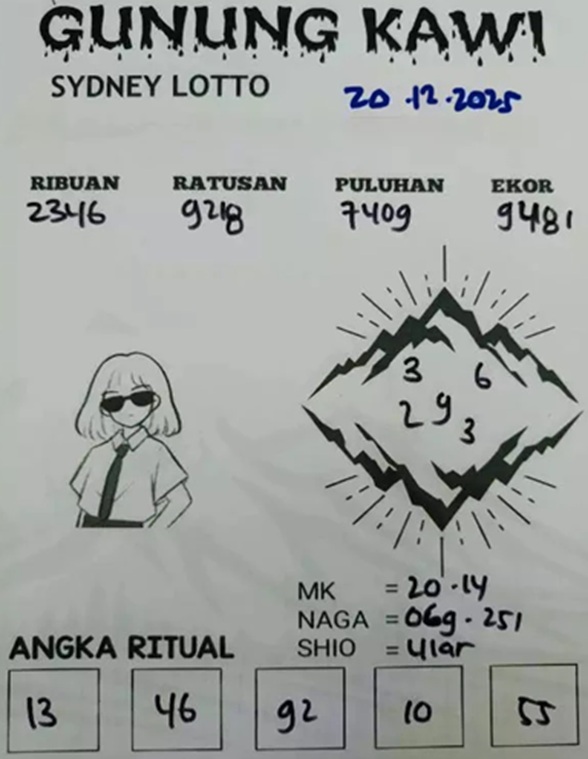 GUNUNG KAWI
SYDNEY LOTTO 20.12.2025
RIBUAN RATUSAN PULUHAN EKOR
2346 9218 7409 9481
3 6
2 9 3
MK = 20.14
NAGA = 069.251
SHIO = Ular
ANGKA RITUAL
13 46 92 10 55